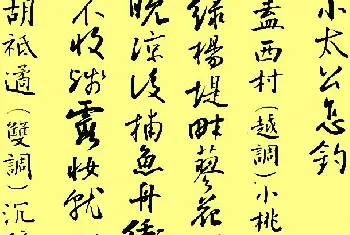 小太公怎釣
蓋西村(越調)小桃
綠楊堤畔蓼花
晚涼後捕魚舟
不收殘霞妝就
胡祗遹(雙調)沉